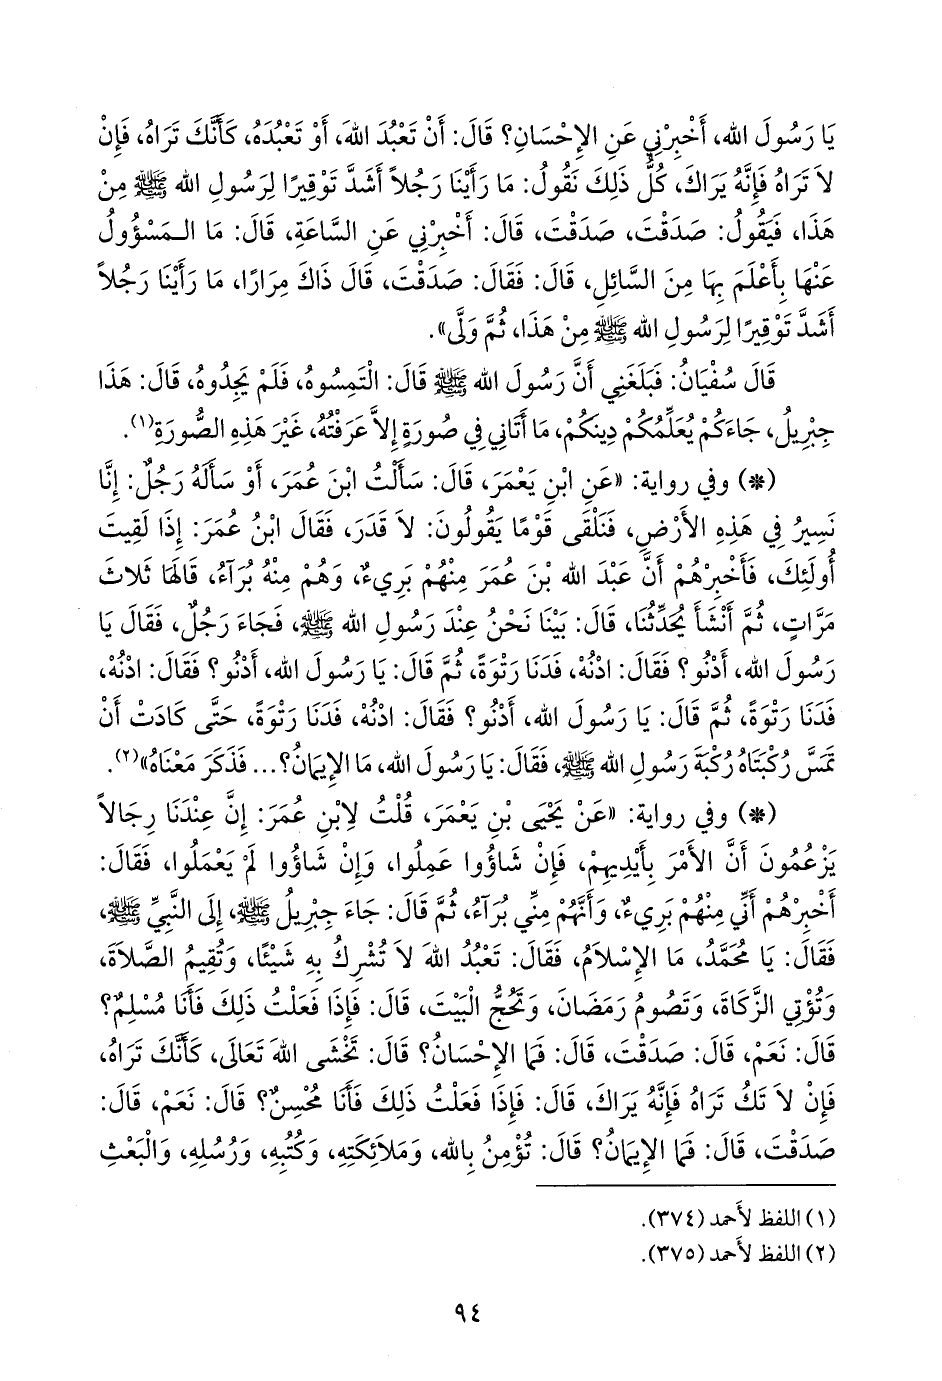 يَا رَسُولَ الله، أَخْبِرْنِي عَنِ الإِحْسَانِ؟ قَالَ: أَنْ تَعْبُدَ اللهَ، أَوْ تَعْبُدَهُ، كَأَنَّكَ تَرَاهُ، فَإِنْ
لاَ تَرَاهُ فَإِنَّهُ يَرَاكَ، كُلُّ ذَلِكَ نَقُولُ: مَا رَأَيْنَا رَجُلاً أَشَدَّ تَوْقِيرًا لِرَسُولِ الله ﷺ مِنْ
هَذَا، فَيَقُولُ: صَدَقْتَ، صَدَقْتَ، قَالَ: أَخْبِرْنِي عَنِ السَّاعَةِ، قَالَ: مَا الـمَسْؤُولُ
عَنْهَا بِأَعْلَمَ بِهَا مِنَ السَّائِلِ، قَالَ: فَقَالَ: صَدَقْتَ، قَالَ ذَاكَ مِرَارًا، مَا رَأَيْنَا رَجُلاً
أَشَدَّ تَوْقِيرًا لِرَسُولِ الله ﷺ مِنْ هَذَا، ثُمَّ وَلَّى».
قَالَ سُفْيَانُ: فَبَلَغَنِي أَنَّ رَسُولَ الله ﷺ قَالَ: الْتَمِسُوهُ، فَلَمْ يَجِدُوهُ، قَالَ: هَذَا
جِبْرِيلُ، جَاءَكُمْ يُعَلِّمُكُمْ دِينَكُمْ، مَا أَتَانِي فِي صُورَةٍ إِلاَّ عَرَفْتُهُ، غَيْرَ هَذِهِ الصُّورَةِ(١).
(*) وفي رواية: «عَنِ ابْنِ يَعْمَرَ، قَالَ: سَأَلْتُ ابْنَ عُمَرَ، أَوْ سَأَلَهُ رَجُلٌ: إِنَّا
نَسِيرُ فِي هَذِهِ الأَرْضِ، فَنَلْقَى قَوْمًا يَقُولُونَ: لاَ قَدَرَ، فَقَالَ ابْنُ عُمَرَ: إِذَا لَقِيتَ
أُولَئِكَ، فَأَخْبِرْهُمْ أَنَّ عَبْدَ الله بْنَ عُمَرَ مِنْهُمْ بَرِيءٌ، وَهُمْ مِنْهُ بُرَآءُ، قَالَهَا ثَلاَثَ
مَرَّاتٍ، ثُمَّ أَنْشَأَ يُحَدِّثُنَا، قَالَ: بَيْنَا نَحْنُ عِنْدَ رَسُولِ الله ﷺ، فَجَاءَ رَجُلٌ، فَقَالَ يَا
رَسُولَ الله، أَدْنُو؟ فَقَالَ: ادْنُهْ، فَدَنَا رَتْوَةً، ثُمَّ قَالَ: يَا رَسُولَ الله، أَدْنُو؟ فَقَالَ: ادْنُهْ،
فَدَنَا رَتْوَةً، ثُمَّ قَالَ: يَا رَسُولَ الله، أَدْنُو؟ فَقَالَ: ادْنُهْ، فَدَنَا رَتْوَةً، حَتَّى كَادَتْ أَنْ
تَمَسَّ رُكْبَتَاهُ رُكْبَةَ رَسُولِ الله ﷺ، فَقَالَ: يَا رَسُولَ الله، مَا الإِيمَانُ؟... فَذَكَرَ مَعْنَاهُ»(٢).
(*) وفي رواية: «عَنْ يَحْيَى بْنِ يَعْمَرَ، قُلْتُ لاِبْنِ عُمَرَ: إِنَّ عِنْدَنَا رِجَالاً
يَزْعُمُونَ أَنَّ الأَمْرَ بِأَيْدِيهِمْ، فَإِنْ شَاؤُوا عَمِلُوا، وَإِنْ شَاؤُوا لَمْ يَعْمَلُوا، فَقَالَ:
أَخْبِرْهُمْ أَنِّي مِنْهُمْ بَرِيءٌ، وَأَنَّهُمْ مِنِّي بُرَآءُ، ثُمَّ قَالَ: جَاءَ جِبْرِيلُ ﷺ، إِلَى النَّبِيِّ ﷺ،
فَقَالَ: يَا مُحَمَّدُ، مَا الإِسْلاَمُ، فَقَالَ: تَعْبُدُ اللهَ لاَ تُشْرِكُ بِهِ شَيْئًا، وَتُقِيمُ الصَّلاَةَ،
وَتُؤْتِي الزَّكَاةَ، وَتَصُومُ رَمَضَانَ، وَتَحُجُّ الْبَيْتَ، قَالَ: فَإِذَا فَعَلْتُ ذَلِكَ فَأَنَا مُسْلِمٌ؟
قَالَ: نَعَمْ، قَالَ: صَدَقْتَ، قَالَ: فَمَا الإِحْسَانُ؟ قَالَ: تَخْشَى اللهَ تَعَالَى، كَأَنَّكَ تَرَاهُ،
فَإِنْ لاَ تَكُ تَرَاهُ فَإِنَّهُ يَرَاكَ، قَالَ: فَإِذَا فَعَلْتُ ذَلِكَ فَأَنَا مُحْسِنٌ؟ قَالَ: نَعَمْ، قَالَ:
صَدَقْتَ، قَالَ: فَمَا الإِيمَانُ؟ قَالَ: تُؤْمِنُ بِالله، وَمَلاَئِكَتِهِ، وَكُتُبِهِ، وَرُسُلِهِ، وَالْبَعْثِ
(١) اللفظ لأَحمد (٣٧٤).
(٢) اللفظ لأَحمد (٣٧٥).
٩٤